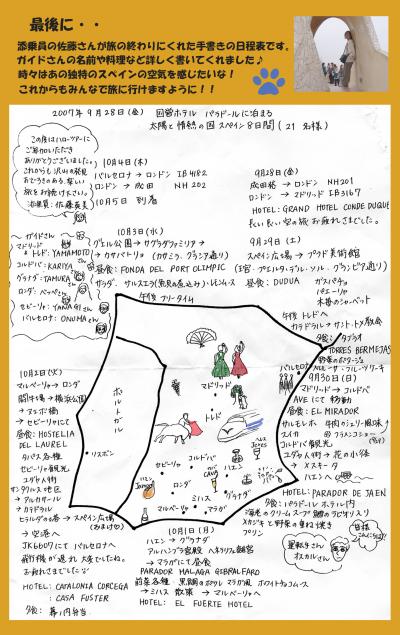 最後に・・
添乗員の佐藤さんが旅の終わりにくれた手書きの日程表です。
ガイドさんの名前や料理など詳しく書いてくれました♪
時々はあの独特のスペインの空気を感じたいな！
これからもみんなで旅に行けますように！！
2007年9月28日(金) 回答ホテル パラドールに泊まる
太陽と情熱の国スペイン8日間(21名様)
この度はハローツアーに
ご参加いただき
ありがとうございました。
これからも沢山の発見
おどろきのある、楽しい
旅をお続け下さい。
添乗員：佐藤英美
10月4日(木)
バルセロナ → ロンドン IB4182
ロンドン → 成田 NH202
10月5日 到着
9月28日(金)
成田発 → ロンドン NH201
ロンドン → マドリード IB3167
HOTEL: GRAND HOTEL CONDE DUQUE
長い長い空の旅お疲れさまでした。
ガイドさん
マドリード
トレド: YAMAMOTO
コルドバ: KARIYA
グラナダ: TAMURA
ロンダ: ペペさん
セビーリャ: YANAGI
バルセロナ: ONUMA
10月3日(水)
グエル公園 → サグラダファミリア →
→ カサバトリョ (カサミラ、グラシア通り)
昼食: FONDA DEL PORT OLIMPIC
サラダ、サルスエラ(魚貝の煮込み)、レモンムース
午後 フリータイム
9月29日(土)
スペイン広場 → プラド美術館
(王宮・プエルタ・デル・ソル・グランビア通り)
昼食: DUDUA ガスパチョ
パエーリャ
木苺のシャーベット
午後 トレドへ
カテドラル → サント・トメ教会
夕食: タブラオ
TORRES BERMEJAS
野菜のポタージュ
フルーツケーキ
9月30日(日)
マドリード → コルドバ
AVEにて移動
昼食: EL MIRADOR
サルモレホ 牛肉のシェリー風味
アイスカ
フラメンコショー
コルドバ観光
ユダヤ人街 → 花の小径
→ メスキータ
ハエンへ
HOTEL: PARADOR DE JAEN
夕食: パラドール ホテル内
海老のクリームスープ 鯛のラビオリ入り
メカジキと野菜の重ね焼き
プリン
運転手さん
オスカルさん
10月2日(火)
マルベーリャ → ロンダ
闘牛場 → 展望公園
→ ヌエボ橋
→ セビーリャにて
昼食: HOSTELIA
DEL LAUREL
タパス各種
セビーリャ観光
ユダヤ人街
サンタクルス地区
→ アルカサール
→ カテドラル
ヒラルダの塔 → スペイン広場
→ 空港へ
JK6607にて バルセロナへ
飛行機が遅れ 大変でしたね。
お疲れさまでした
HOTEL: CATALONIA CORCEGA
CASA FUSTER
夕食: 幕ノ内弁当
10月1日(月)
ハエン → グラナダ
アルハンブラ宮殿 ヘネラリフェ離宮
→ マラガにて昼食
PARADOR MALAGA GIBRALFARO
→ ミハス 散策 → マルベーリャへ
HOTEL: EL FUERTE HOTEL
ポルトガル
リスボン
マドリード
トレド
バルセロナ
セビーリャ
コルドバ
ハエン
ロンダ
グラナダ
ミハス
マルベーリャ
マラガ
CAVA